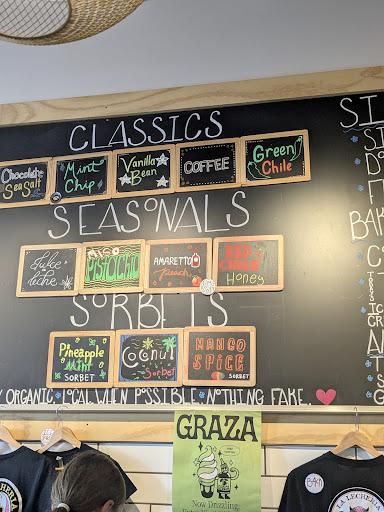 CLASSICS
Chocolate Sea Salt
Mint Chip
Vanilla Bean
COFFEE
Green Chile
SEASONALS
Dulce de leche
PISTACHIO
AMARETTO Peach
RED CHILE Honey
SORBETS
Pineapple Mint SORBET
Coconut Sorbet
MANGO SPICE SORBET
ORGANIC, LOCAL WHEN POSSIBLE, NOTHING FAKE.
GRAZA
Now Drizzling:
LA LECHERA